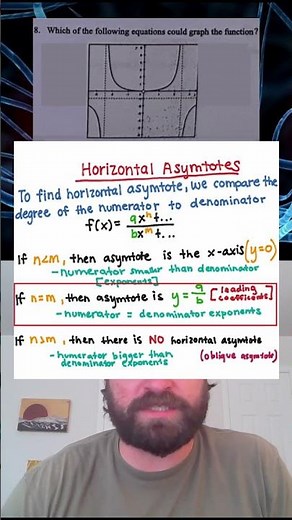 8. Which of the following equations could graph the function?
Horizontal Asymtotes
To find horizontal asymtote, we compare the
degree of the numerator to denominator
f(x)= axⁿ+...
bxᵐ+...
If n<m, then asymtote is the x-axis (y=0)
- numerator smaller than denominator
[exponents]
If n=m, then asymtote is y= a/b [leading coefficients]
- numerator = denominator exponents
If n>m, then there is NO horizontal asymtote
- numerator bigger than (oblique asymtote)
denominator exponents